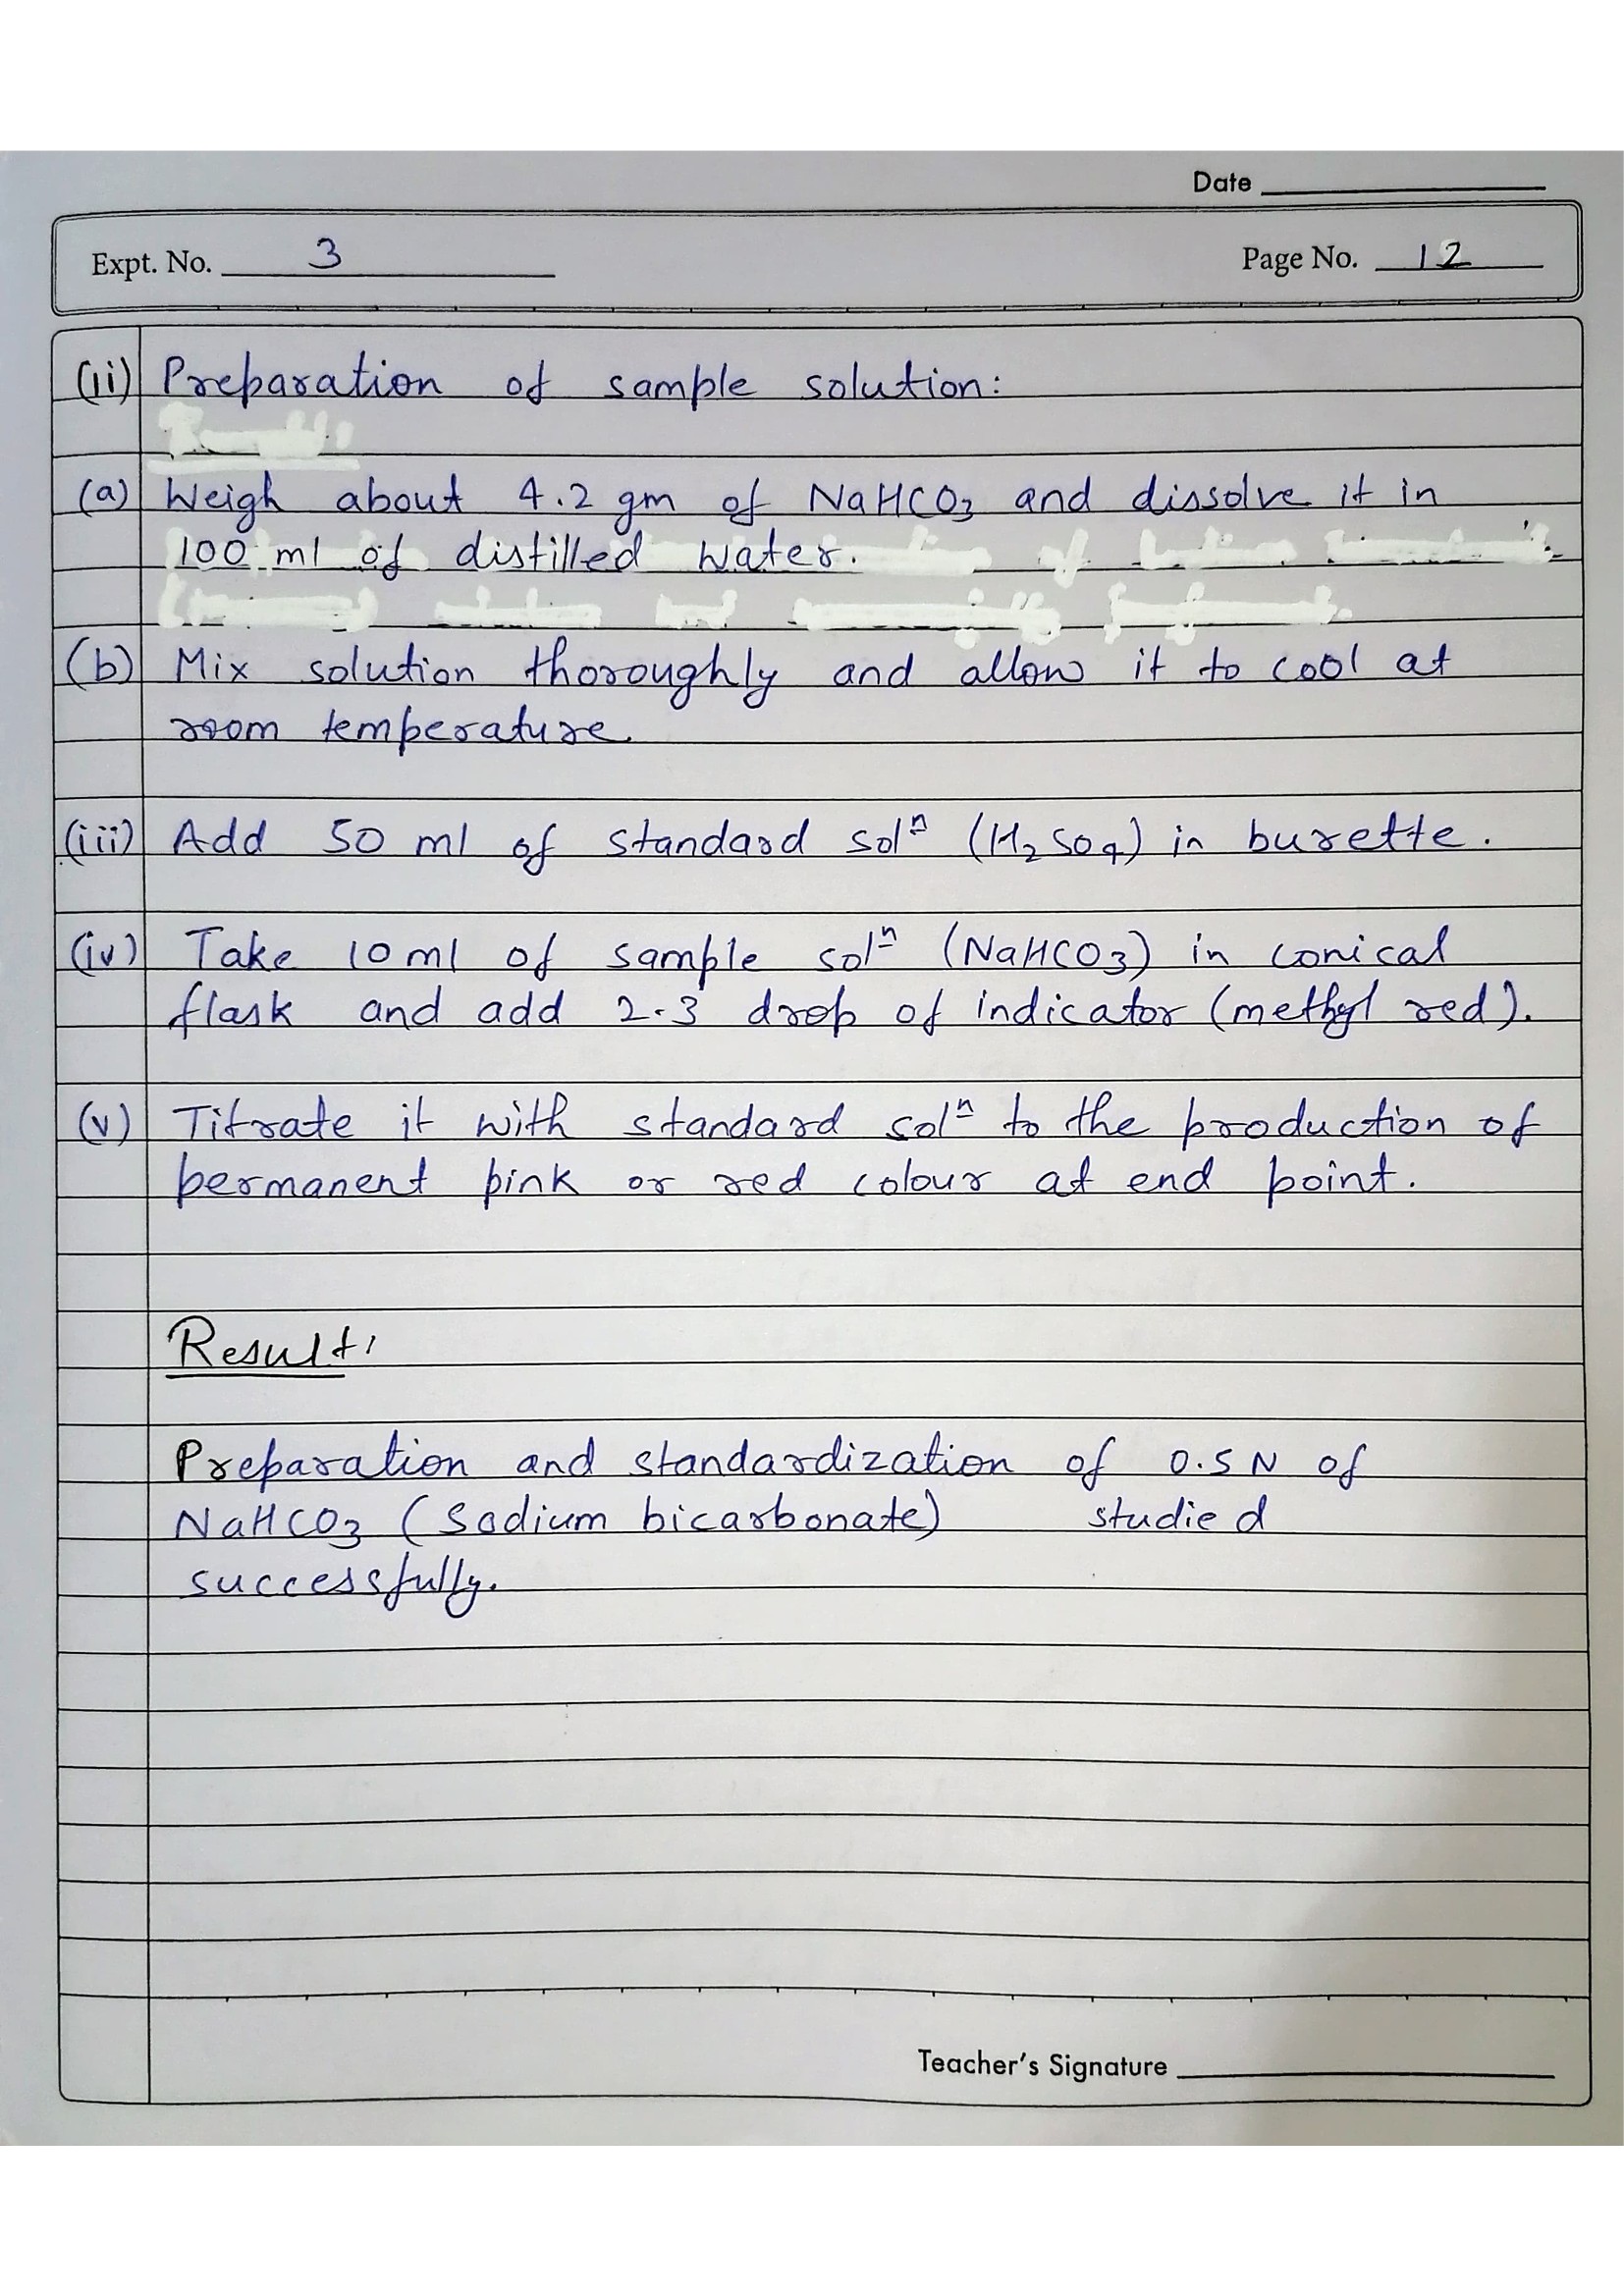 Date
Expt. No. 3
Page No. 12
(ii) Preparation of sample solution:
(a) Weigh about 4.2 gm of NaHCO₃ and dissolve it in
100 ml of distilled water.
(b) Mix solution thoroughly and allow it to cool at
room temperature.
(iii) Add 50 ml of standard solⁿ (H₂SO₄) in burette.
(iv) Take 10 ml of sample solⁿ (NaHCO₃) in conical
flask and add 2-3 drop of indicator (methyl red).
(v) Titrate it with standard solⁿ to the production of
permanent pink or red colour at end point.
Result:
Preparation and standardization of 0.5 N of
NaHCO₃ (Sodium bicarbonate) studied
successfully.
Teacher's Signature